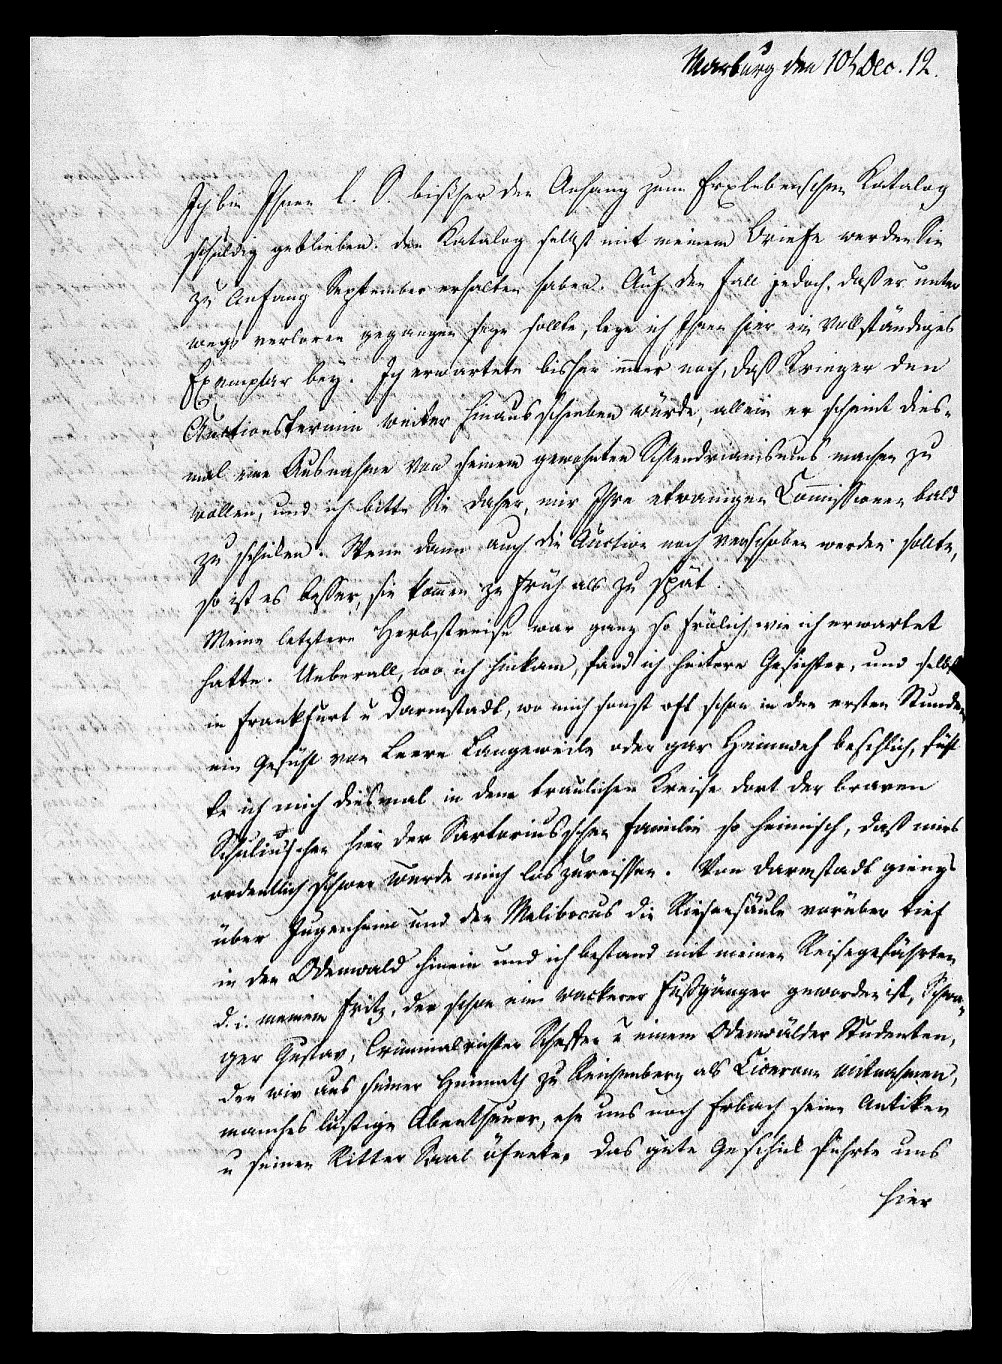 Marburg den 10t Dec. 12.
Ich bin Ihnen l. S. bißher den Anhang zum Erxlebenschen Katalog
schuldig geblieben. den Katalog selbst mit meinem Briefe werden Sie
zu Anfang September erhalten haben. Auf den Fall jedoch, daß er unter
wegs verloren gegangen seyn sollte, lege ich Ihnen hier ein vollständiges
Exemplar bey. Ich erwartete bisher immer noch, daß Krieger den
Auctionstermin weiter hinausschieben würde, allein er scheint dies-
mal eine Ausnahme von seinem gewohnten Schlendrianismus machen zu
wollen, und ich bitte Sie daher, mir Ihre etwanigen Commissionen bald
zu schicken. Wenn dann auch die Auction noch verschoben werden sollte,
so ist es besser, sie kommen zu früh als zu spät.
Meine letztere Herbstreise war ganz so frölich, wie ich erwartet
hatte. Ueberall, wo ich hinkam, fand ich heitere Gesichter, und selbst
in Frankfurt u Darmstadt, wo mich sonst oft schon in den ersten Stunden
ein Gefühl von Leere Langeweile oder gar Heimweh beschlich, fühl
te ich mich diesmal in dem traulichen Kreise dort der braven
Schuliusschen hier der Sartoriusschen Familie so heimisch, daß mirs
ordentlich schwer wurde mich loszureissen. Von Darmstadt giengs
über Jugenheim und den Melibocus die Riesensäule vorüber tief
in den Odenwald hinein und ich bestand mit meinen Reisegefährten
d. i. meinem Fritz, der schon ein wackerer Fußgänger geworden ist, Schwa-
ger Gustav, Criminalrichter Scheffer u einem Odenwälder Studenten,
den wir aus seiner Heimath zu Reichenberg als Cicerone mitnahmen,
manches lustige Abentheuer, ehe uns noch Erbach seine Antiken
u seinen Ritter Saal öfnete. das gute Geschick führte uns
hier